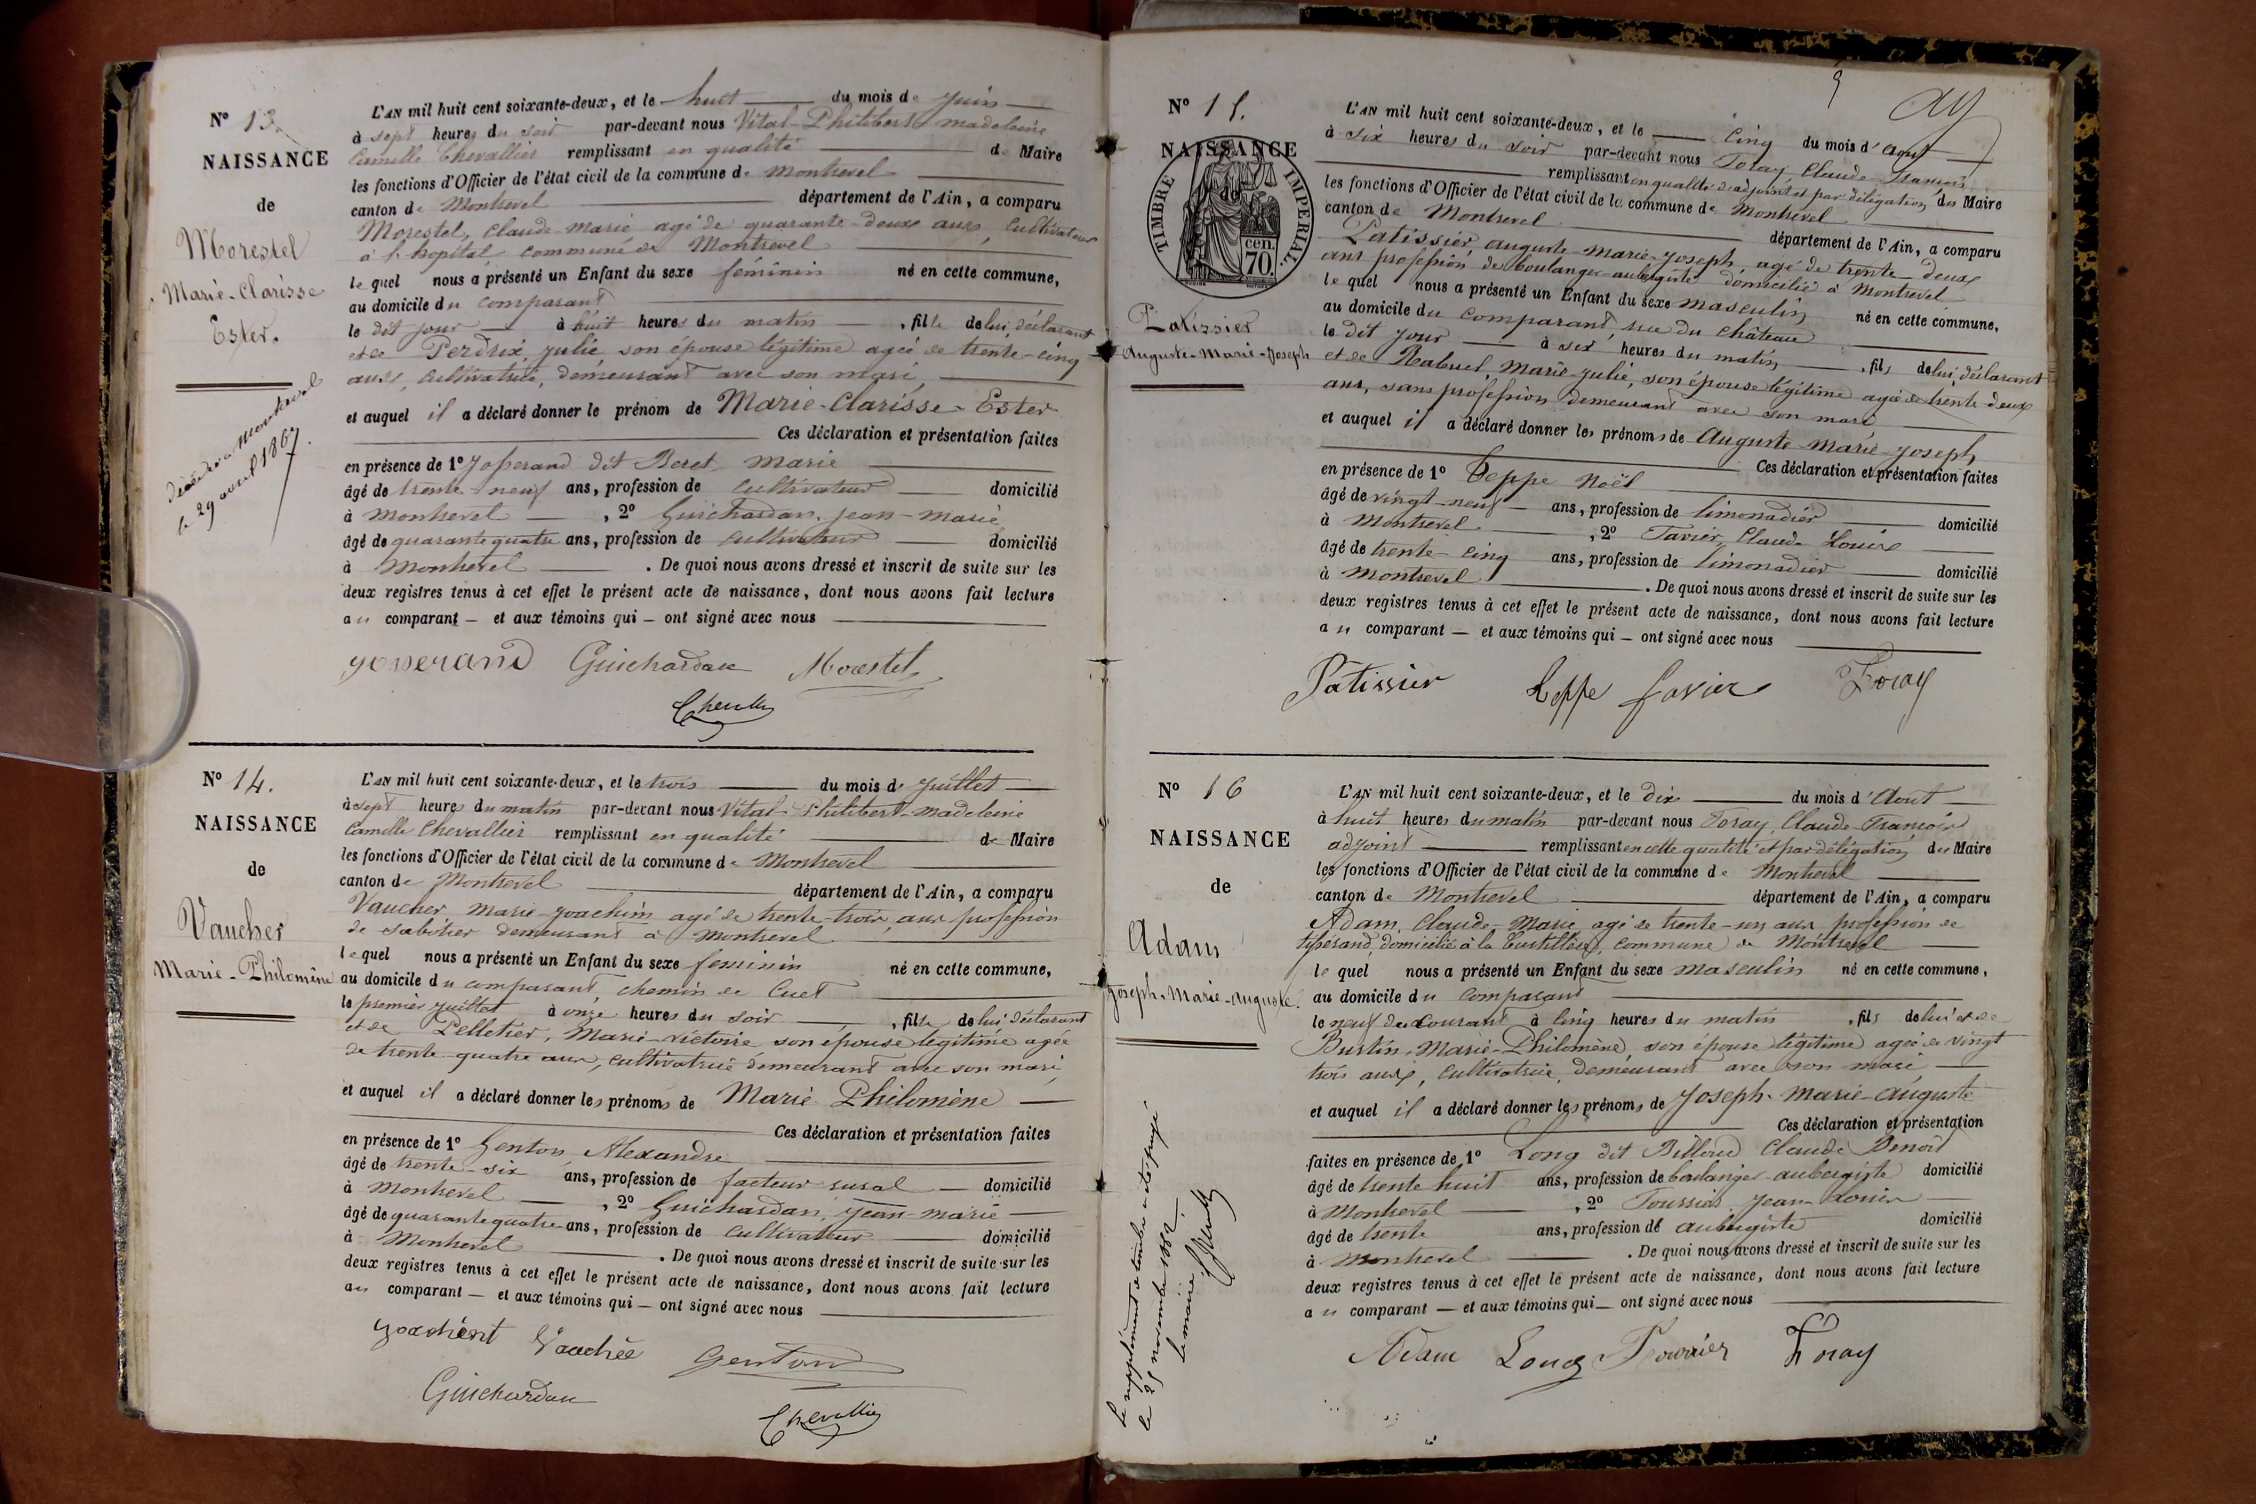 Nº 13.
NAISSANCE
de
Morestel
Marie-Clarisse
Ester.
décédée à Montrevel
le 29 avril 1867.
L'AN mil huit cent soixante-deux, et le huit du mois de juin
à sept heures du soir par-devant nous Vital-Philibert-Madeleine
Camille Chevallier remplissant en qualité de Maire
les fonctions d'Officier de l'état civil de la commune de Montrevel
canton de Montrevel département de l'Ain, a comparu
Morestel, Claude-Marie agé de quarante-deux ans, Cultivateur
à l'hopital commune de Montrevel
lequel nous a présenté un Enfant du sexe féminin né en cette commune,
au domicile du comparant
le dit jour à huit heures du matin, fille de lui, déclarant
et de Perdrix, Julie son épouse légitime agée de trente-cinq
ans, cultivatrice, demeurant avec son mari,
et auquel il a déclaré donner le prénom de Marie-Clarisse-Ester
Ces déclaration et présentation faites
en présence de 1º Josserand dit Beret Marie
âgé de trente-neuf ans, profession de cultivateur domicilié
à Montrevel, 2º Guichardan, Jean-Marie
âgé de quarante quatre ans, profession de cultivateur domicilié
à Montrevel. De quoi nous avons dressé et inscrit de suite sur les
deux registres tenus à cet effet le présent acte de naissance, dont nous avons fait lecture
au comparant et aux témoins qui ont signé avec nous
Josserand Guichardan Morestel
Chevallier
Nº 14.
NAISSANCE
de
Vaucher
Marie-Philomène
L'AN mil huit cent soixante-deux, et le trois du mois de juillet
à sept heures du matin par-devant nous Vital-Philibert-Madeleine
Camille Chevallier remplissant en qualité de Maire
les fonctions d'Officier de l'état civil de la commune de Montrevel
canton de Montrevel département de l'Ain, a comparu
Vaucher, Marie-Joachim agé de trente-trois ans profession
de sabotier demeurant à Montrevel
lequel nous a présenté un Enfant du sexe feminin né en cette commune,
au domicile du comparant, chemin de Cuet
le premier juillet à onze heures du soir, fille de lui déclarant
et de Pelletier, Marie-Victoire son épouse légitime agée
de trente-quatre ans, cultivatrice demeurant avec son mari,
et auquel il a déclaré donner les prénoms de Marie Philomène
Ces déclaration et présentation faites
en présence de 1º Genton Alexandre
âgé de trente-six ans, profession de facteur rural domicilié
à Montrevel, 2º Guichardan, Jean-Marie
âgé de quarante quatre ans, profession de cultivateur domicilié
à Montrevel. De quoi nous avons dressé et inscrit de suite sur les
deux registres tenus à cet effet le présent acte de naissance, dont nous avons fait lecture
au comparant et aux témoins qui ont signé avec nous
Vauchée Genton
Guichardan
Chevallier
9
Nº 15.
NAISSANCE
de
TIMBRE IMPERIAL.
cen.
70.
Patissier
Auguste-Marie-Joseph
L'AN mil huit cent soixante-deux, et le cinq du mois d'Aout
à six heures du soir par-devant nous Foray, Claude-François
remplissant en qualité d'adjoint et par délégation du Maire
les fonctions d'Officier de l'état civil de la commune de Montrevel
canton de Montrevel département de l'Ain, a comparu
Patissier, Auguste-Marie-Joseph agé de trente-deux
ans profession de boulanger-aubergiste domicilié à Montrevel
lequel nous a présenté un Enfant du sexe masculin né en cette commune,
au domicile du comparant, rue du château
le dit jour à six heures du matin, fils de lui, déclarant
et de Rabuel, Marie-Julie, son épouse légitime agée de trente-deux
ans, sans profession demeurant avec son mari
et auquel il a déclaré donner les prénoms de Auguste-Marie-Joseph
Ces déclaration et présentation faites
en présence de 1º Teppe Noël
âgé de vingt-neuf ans, profession de limonadier domicilié
à Montrevel, 2º Favier, Claude Louis
âgé de trente-cinq ans, profession de limonadier domicilié
à Montrevel. De quoi nous avons dressé et inscrit de suite sur les
deux registres tenus à cet effet le présent acte de naissance, dont nous avons fait lecture
au comparant et aux témoins qui ont signé avec nous
Pâtissier Teppe favier Foray
Nº 16
NAISSANCE
de
Adam
Joseph-Marie-Auguste.
Le supplément de timbre a été payé
le 25 novembre 1862,
Le maire
L'AN mil huit cent soixante-deux, et le dix du mois d'Aout
à huit heures du matin par-devant nous Foray, Claude-François
adjoint remplissant en cette qualité et par délégation du Maire
les fonctions d'Officier de l'état civil de la commune de Montrevel
canton de Montrevel département de l'Ain, a comparu
Adam, Claude-Marie, agé de trente-un ans profession de
tisserand, domicilié à la commune de Montrevel
lequel nous a présenté un Enfant du sexe masculin né en cette commune,
au domicile du comparant
le neuf du courant à cinq heures du matin, fils de lui et de
Burtin, Marie-Philomène, son épouse légitime agée de vingt
trois ans, cultivatrice, demeurant avec son mari,
et auquel il a déclaré donner les prénoms de Joseph-Marie-Auguste
Ces déclaration et présentation
faites en présence de 1º Long dit Billoud Claude Benoît
âgé de trente huit ans, profession de boulanger-aubergiste domicilié
à Montrevel, 2º Jean-Louis
âgé de trente ans, profession de aubergiste domicilié
à Montrevel. De quoi nous avons dressé et inscrit de suite sur les
deux registres tenus à cet effet le présent acte de naissance, dont nous avons fait lecture
au comparant et aux témoins qui ont signé avec nous
Adam Long Foray